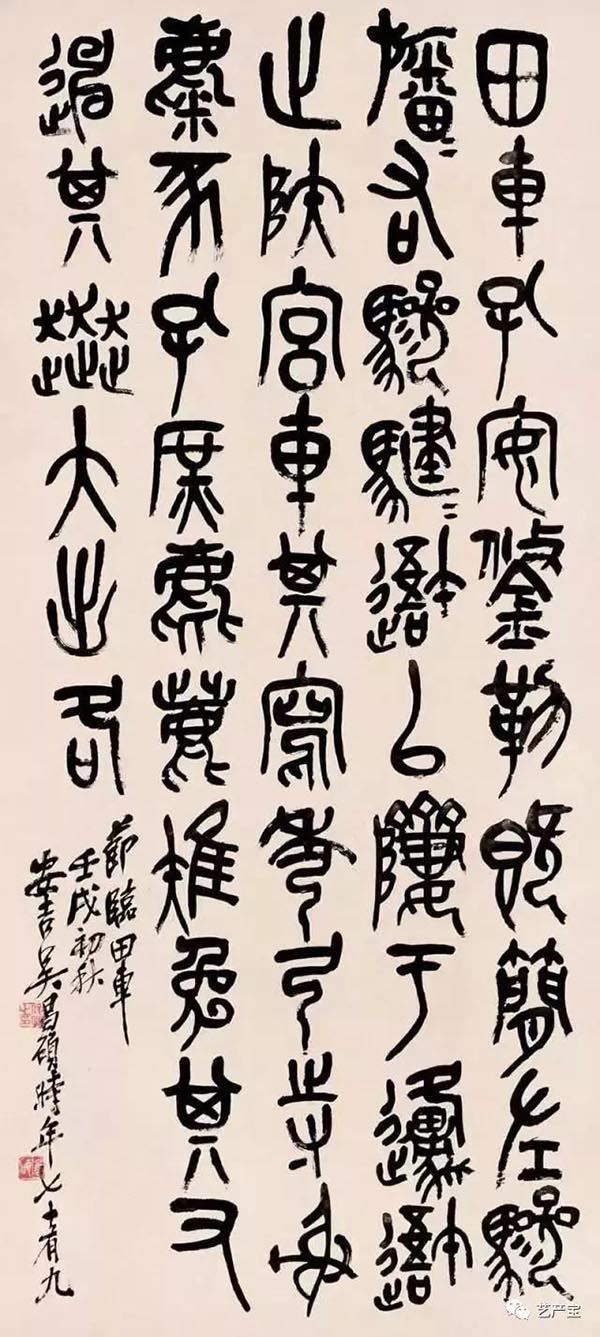 田車孔安鋚勒既簡左驂
旛=右驂騝=以隮于邍
止陝宮車其寫秀弓寺射
麋豕孔庶麀鹿雉兔其又
其奔大出各
節臨田車
壬戌初秋
安吉吳昌碩時年七十有九
艺产宝